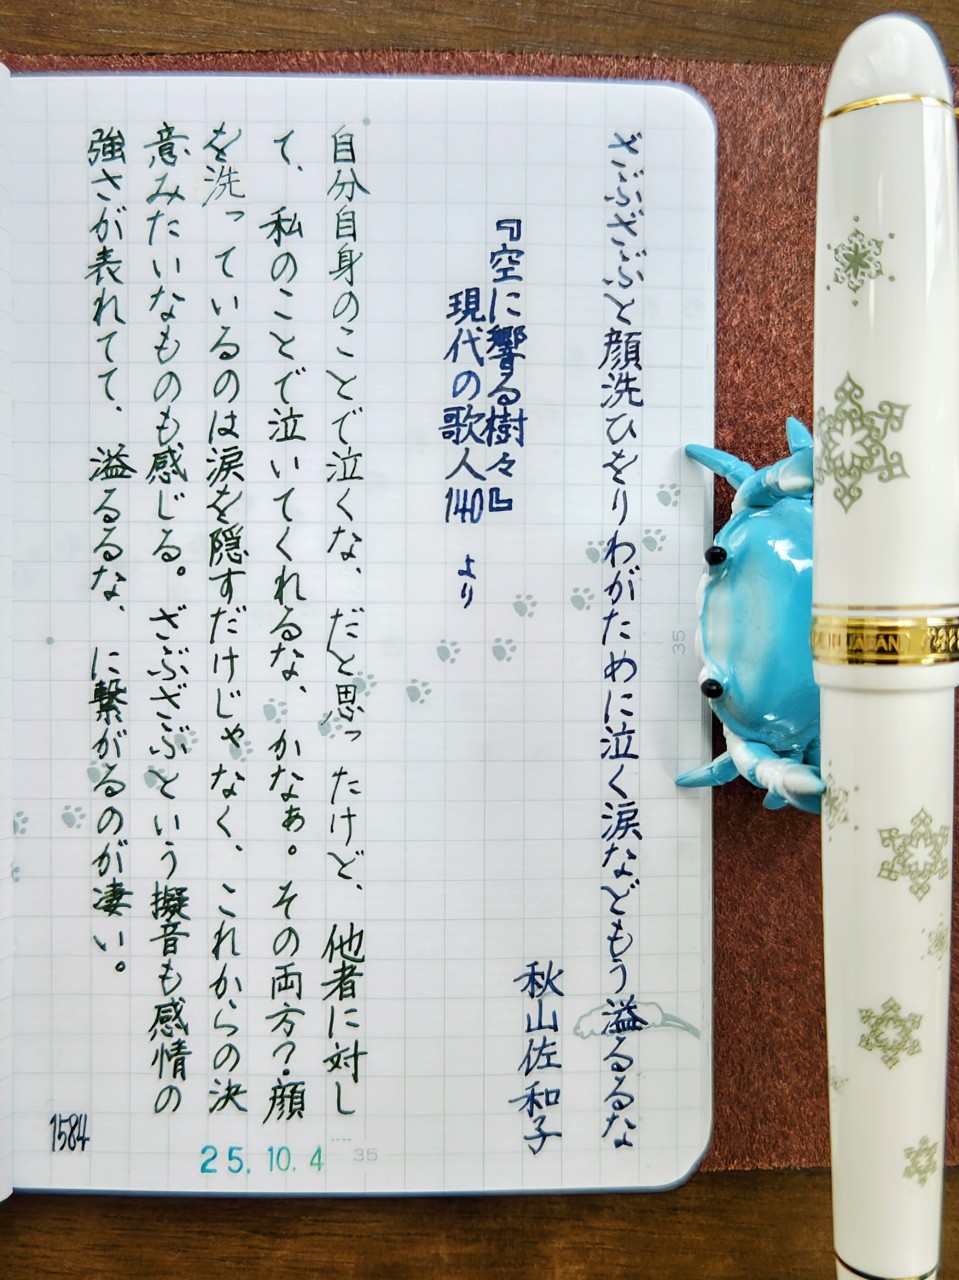 ざぶざぶと顔洗ひをりわがために泣く涙などもう溢るるな
秋山佐和子
『空に響る樹々』
現代の歌人140 より
自分自身のことで泣くな、だと思ったけど、他者に対し
て、私のことで泣いてくれるな、かなぁ。その両方?顔
を洗っているのは涙を隠すだけじゃなく、これからの決
意みたいなものも感じる。ざぶざぶという擬音も感情の
強さが表れてて、溢るるな、に繋がるのが凄い。
1584
25.10.4
35
35
IN JAPAN